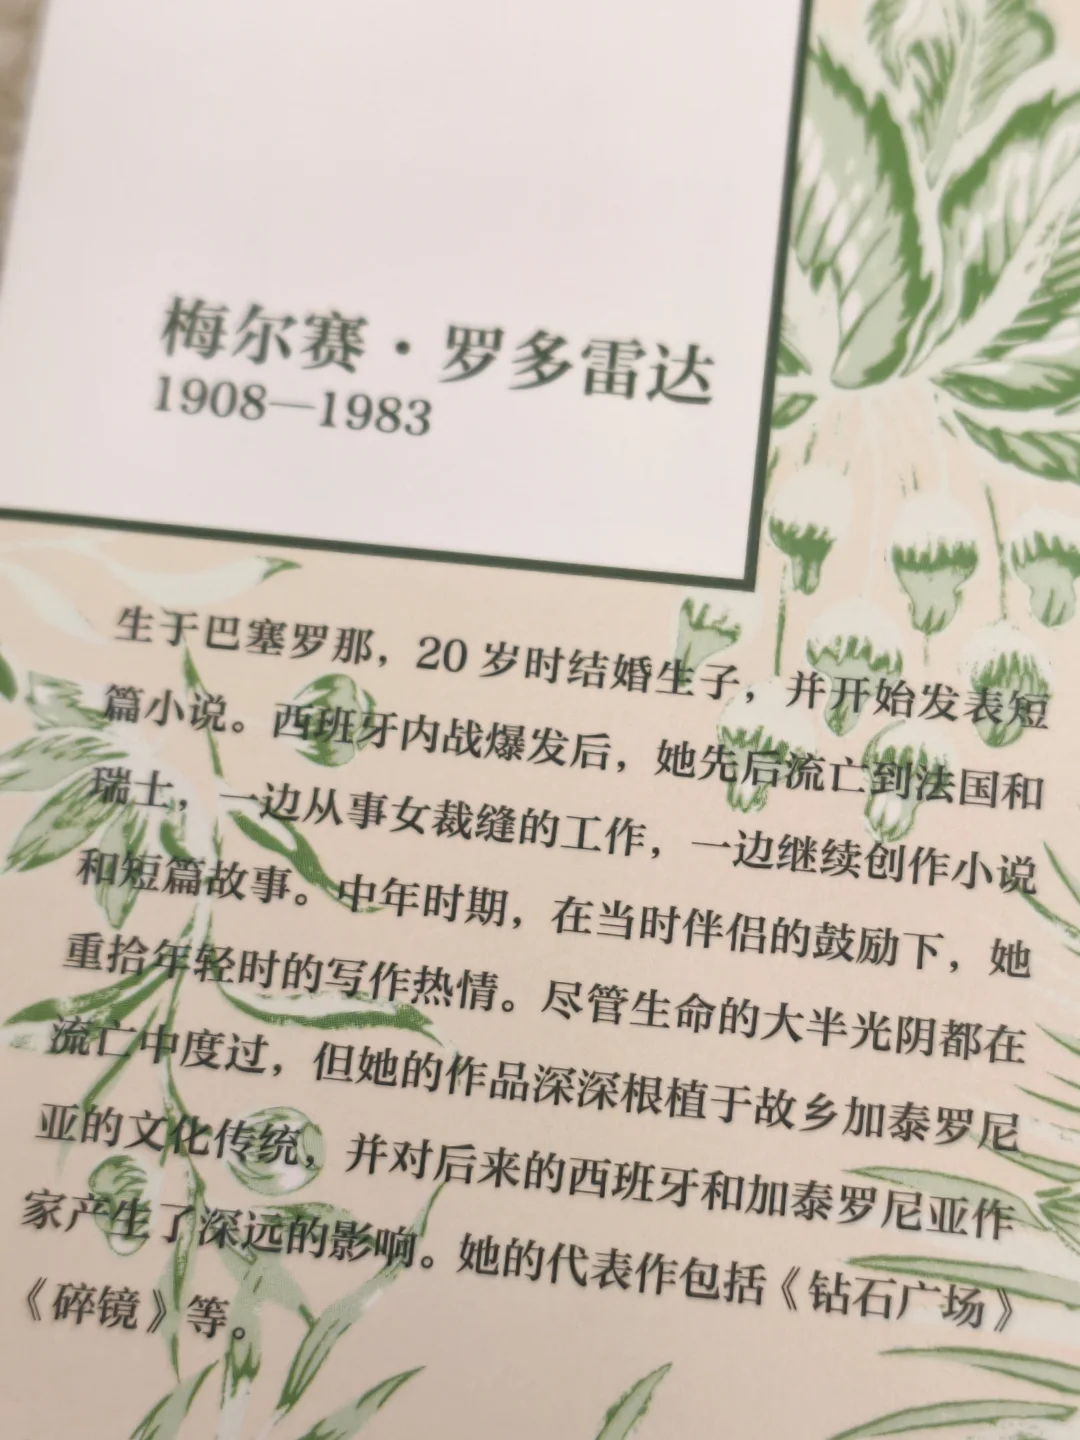 梅尔赛·罗多雷达
1908—1983
生于巴塞罗那，20 岁时结婚生子，并开始发表短
篇小说。西班牙内战爆发后，她先后流亡到法国和
瑞士，一边从事女裁缝的工作，一边继续创作小说
和短篇故事。中年时期，在当时伴侣的鼓励下，她
重拾年轻时的写作热情。尽管生命的大半光阴都在
流亡中度过，但她的作品深深根植于故乡加泰罗尼
亚的文化传统，并对后来的西班牙和加泰罗尼亚作
家产生了深远的影响。她的代表作包括《钻石广场》
《碎镜》等。